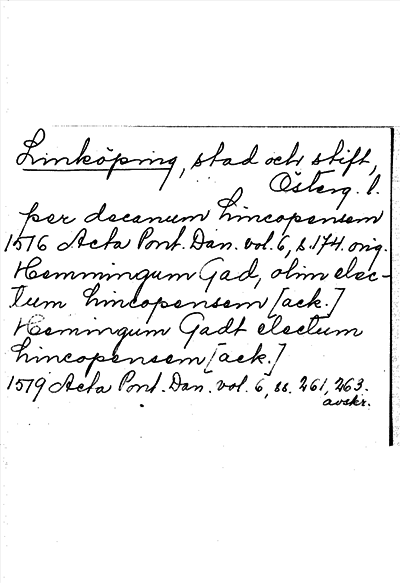 Linköping, stad och stift,
Österg. l.
per decanum Lincopensem
1516 Acta Pont. Dan. vol. 6, s. 174. orig.
Hemmingum Gad, olim elec-
tum Lincopensem [ack.]
Hemingum Gadt electum
Lincopensem [ack.]
1519 Acta Pont. Dan. vol. 6, ss. 261, 263.
avskr.